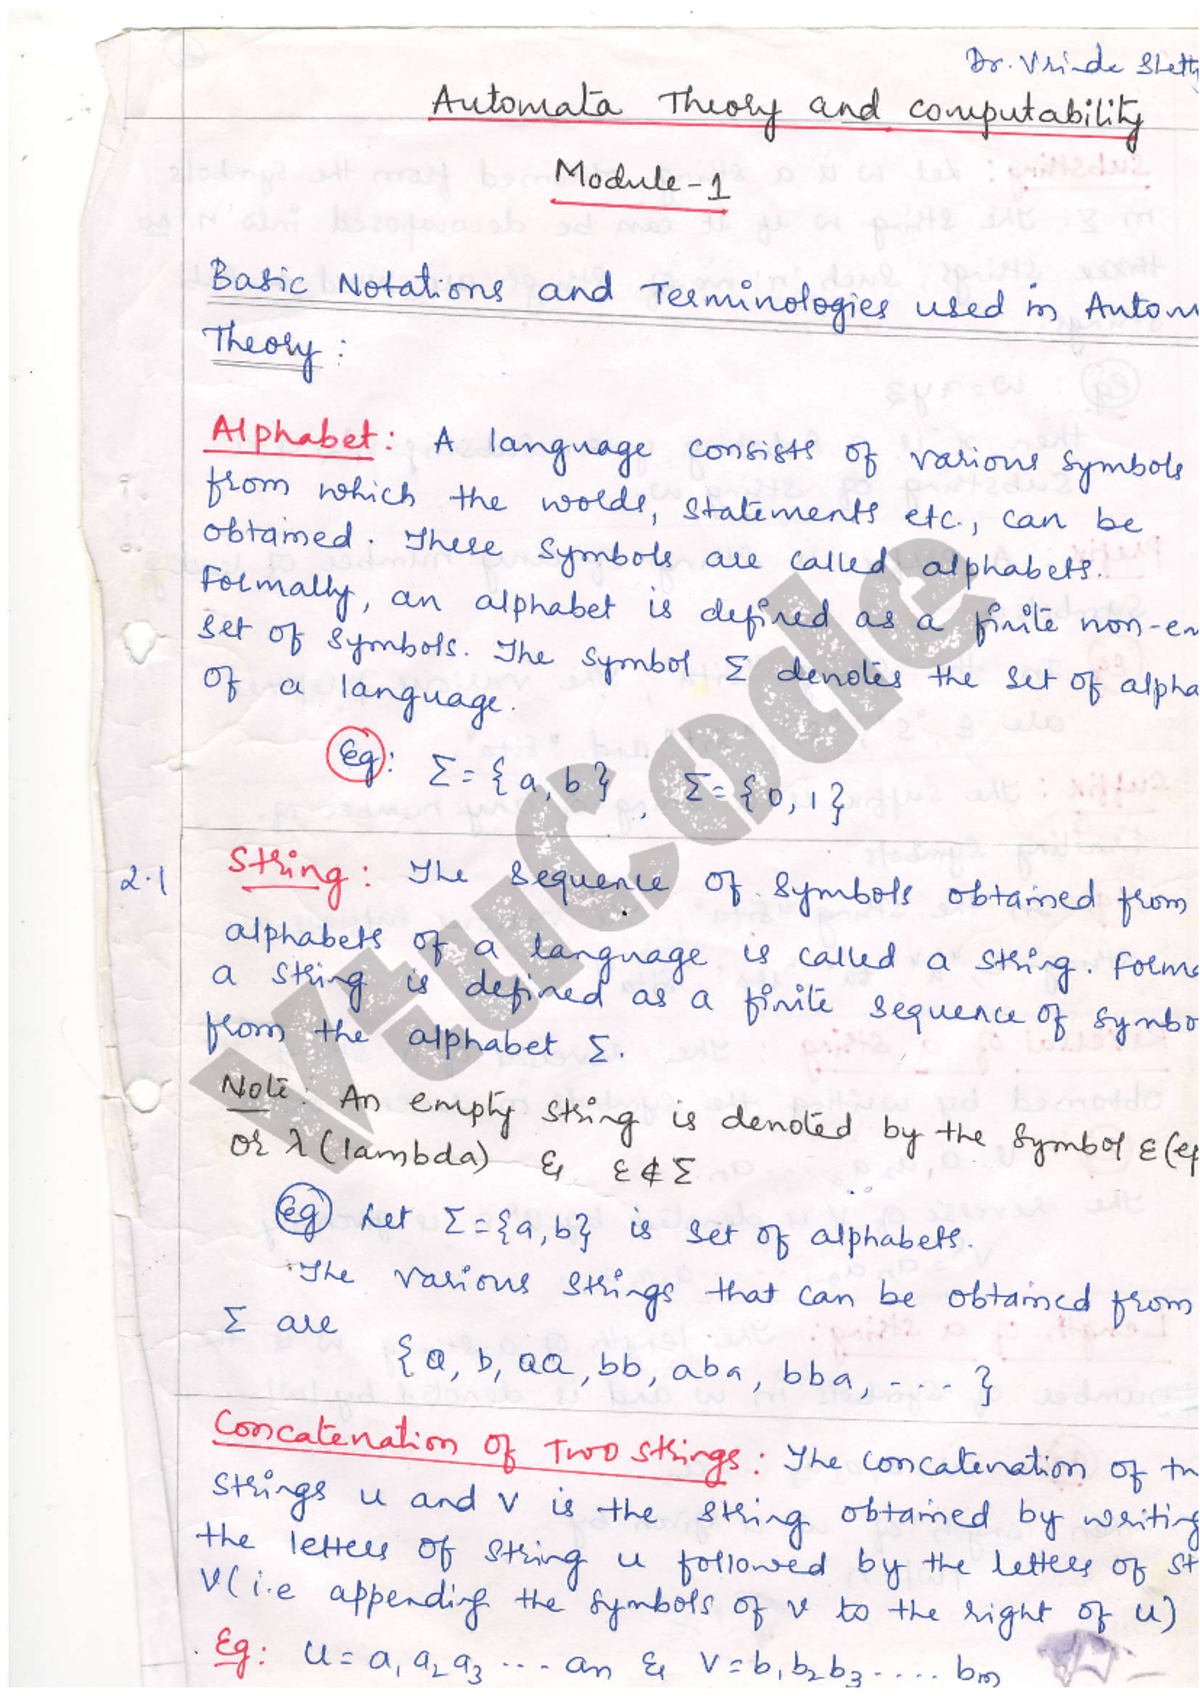 Dr. Vrinda Shetty
Automata Theory and Computability
Module-1
Basic Notations and Terminologies used in Autom
Theory:
Alphabet: A language consists of various symbols
from which the words, statements etc., can be
obtained. These symbols are called alphabets.
Formally, an alphabet is defined as a finite non-em
set of symbols. The symbol Σ denotes the set of alpha
of a language.
Eg: Σ={a,b}, Σ={0,1}
2.1 String: The sequence of symbols obtained from
alphabets of a language is called a string. Forma
a string is defined as a finite sequence of symbo
from the alphabet Σ.
Note: An empty string is denoted by the symbol ε(ep
or λ(lambda) & ε∉Σ
Eg Let Σ={a,b} is set of alphabets.
The various strings that can be obtained from
Σ are
{a, b, aa, bb, aba, bba, ---- }
Concatenation of Two Strings: The concatenation of tw
strings u and v is the string obtained by writing
the letters of string u followed by the letters of st
v(i.e appending the symbols of v to the right of u)
Eg: u=a₁a₂a₃...an & v=b₁b₂b₃....bm
Vtucode